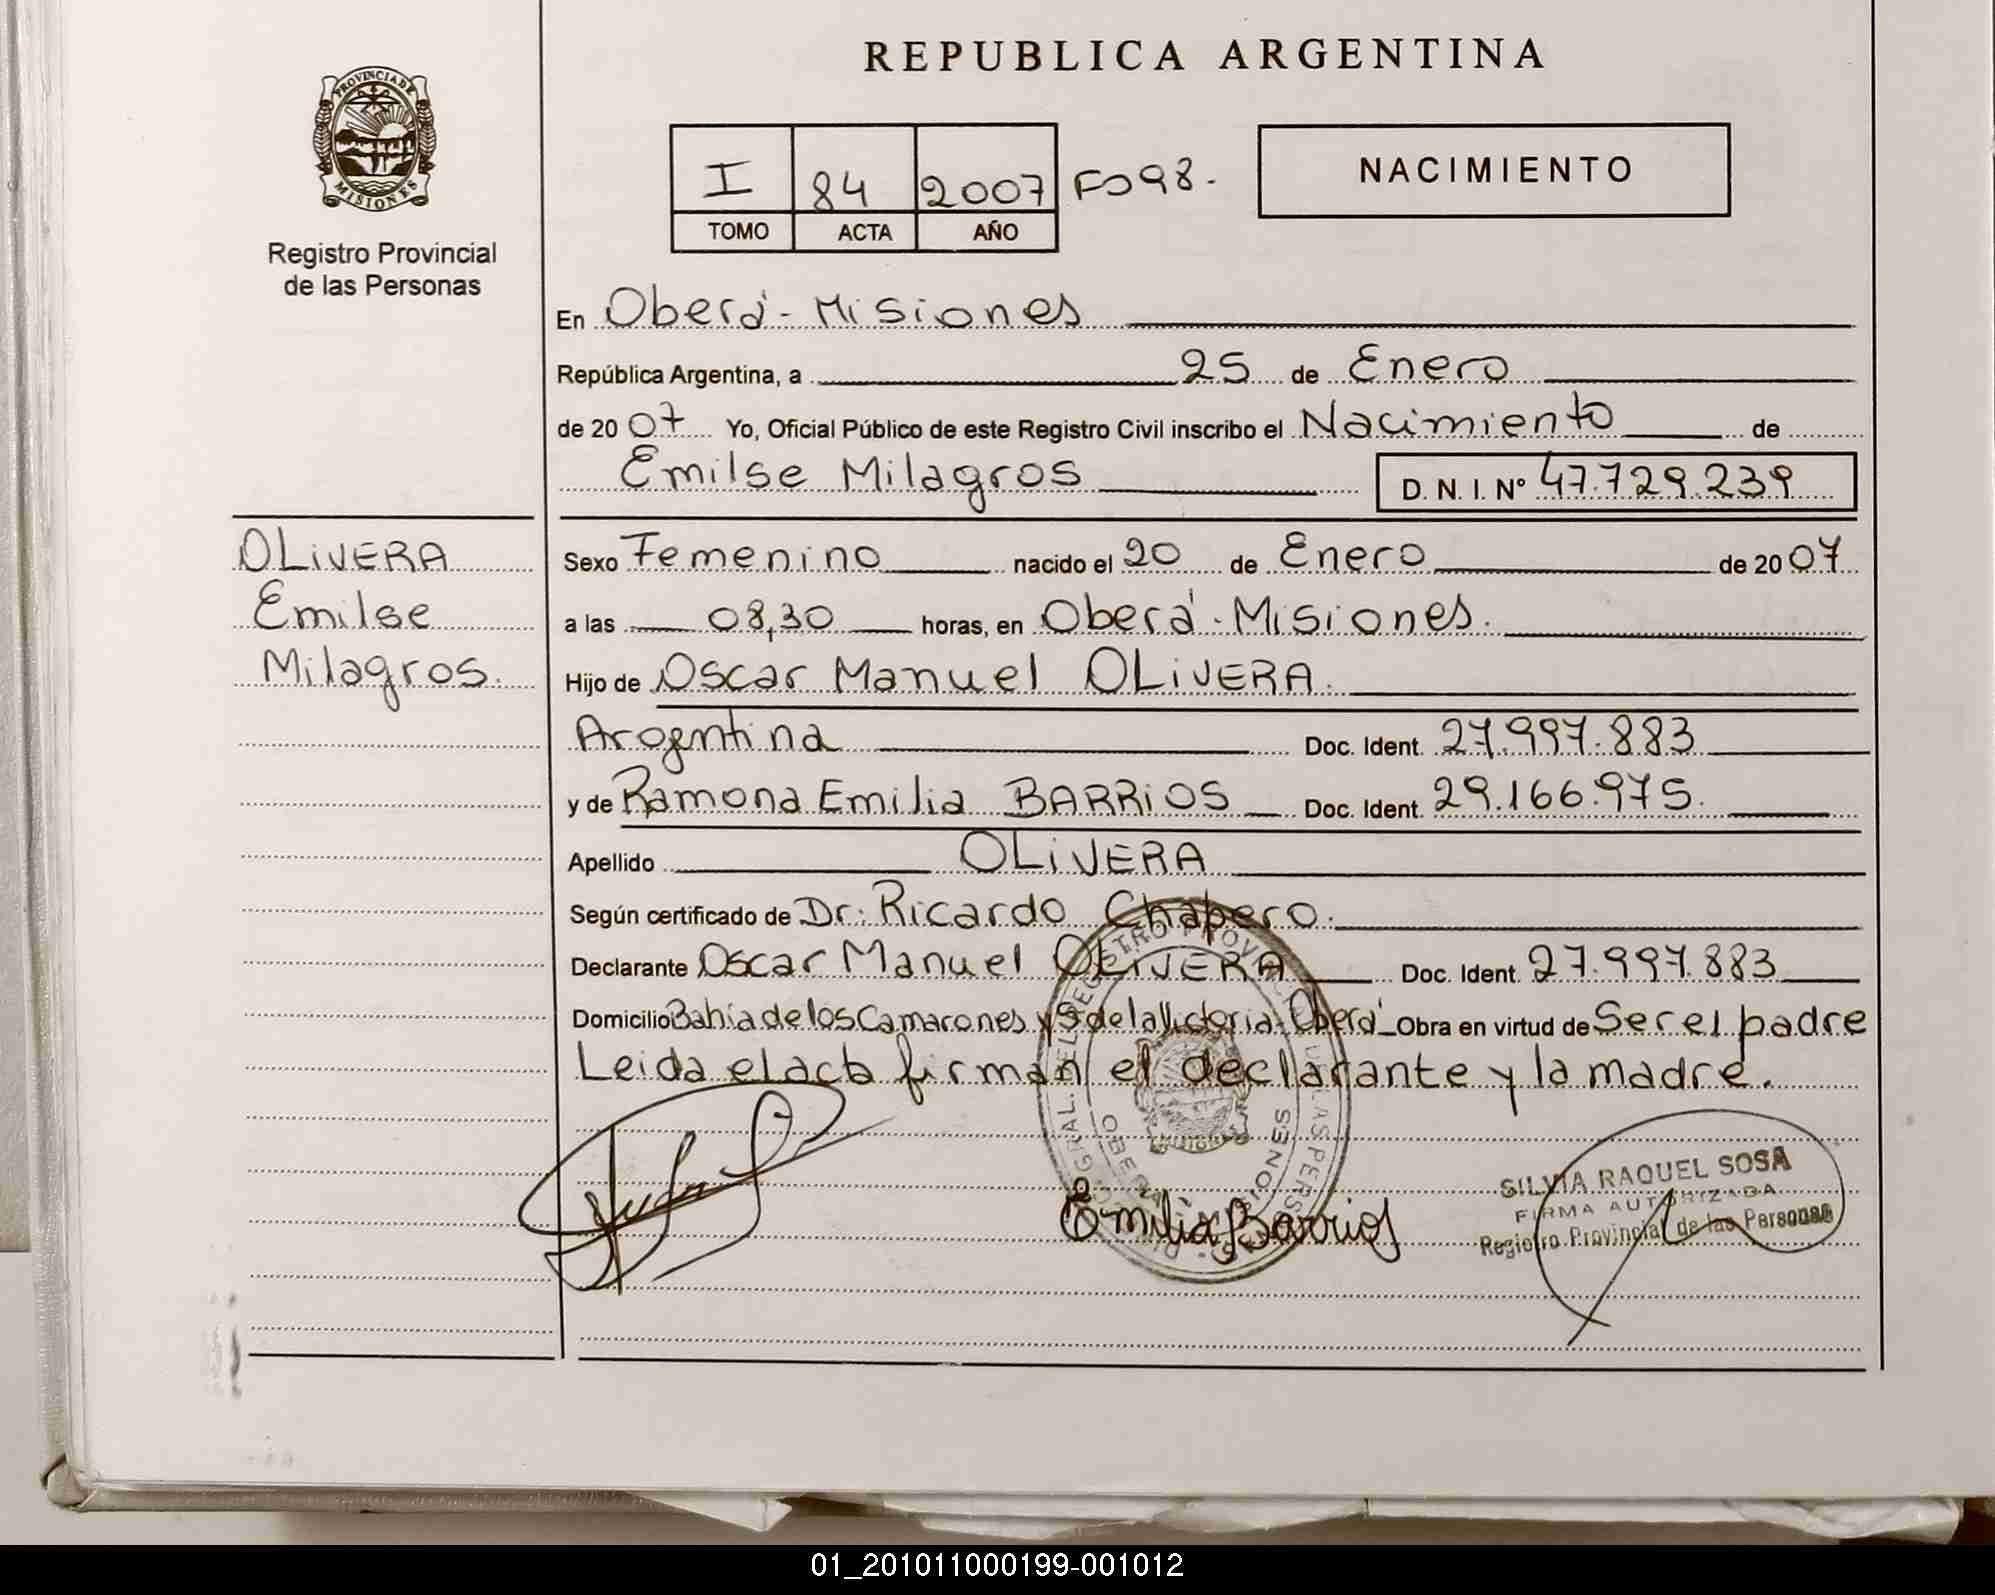 REPUBLICA ARGENTINA
PROVINCIA DE
MISIONES
Registro Provincial
de las Personas
I 84 2007 Fo98.
TOMO ACTA AÑO
NACIMIENTO
En Oberá - Misiones
República Argentina, a 25 de Enero
de 2007 Yo, Oficial Público de este Registro Civil inscribo el Nacimiento de
Emilse Milagros D. N. I. Nº 47.729.239
OLIVERA
Emilse
Milagros.
Sexo Femenino nacido el 20 de Enero de 2007
a las 08,30 horas, en Oberá - Misiones.
Hijo de Oscar Manuel OLIVERA.
Argentina Doc. Ident. 27.997.883
y de Ramona Emilia BARRIOS Doc. Ident. 29.166.975.
Apellido OLIVERA
Según certificado de Dr. Ricardo Chapero.
Declarante Oscar Manuel OLIVERA Doc. Ident. 27.997.883
Domicilio Bahía de los Camarones y de la Victoria - Oberá Obra en virtud de Ser el padre
Leida el acta firman el declarante y la madre.
Emilia Barrios
SILVIA RAQUEL SOSA
FIRMA AUTORIZADA
Registro Provincial de las Personas
01_201011000199-001012